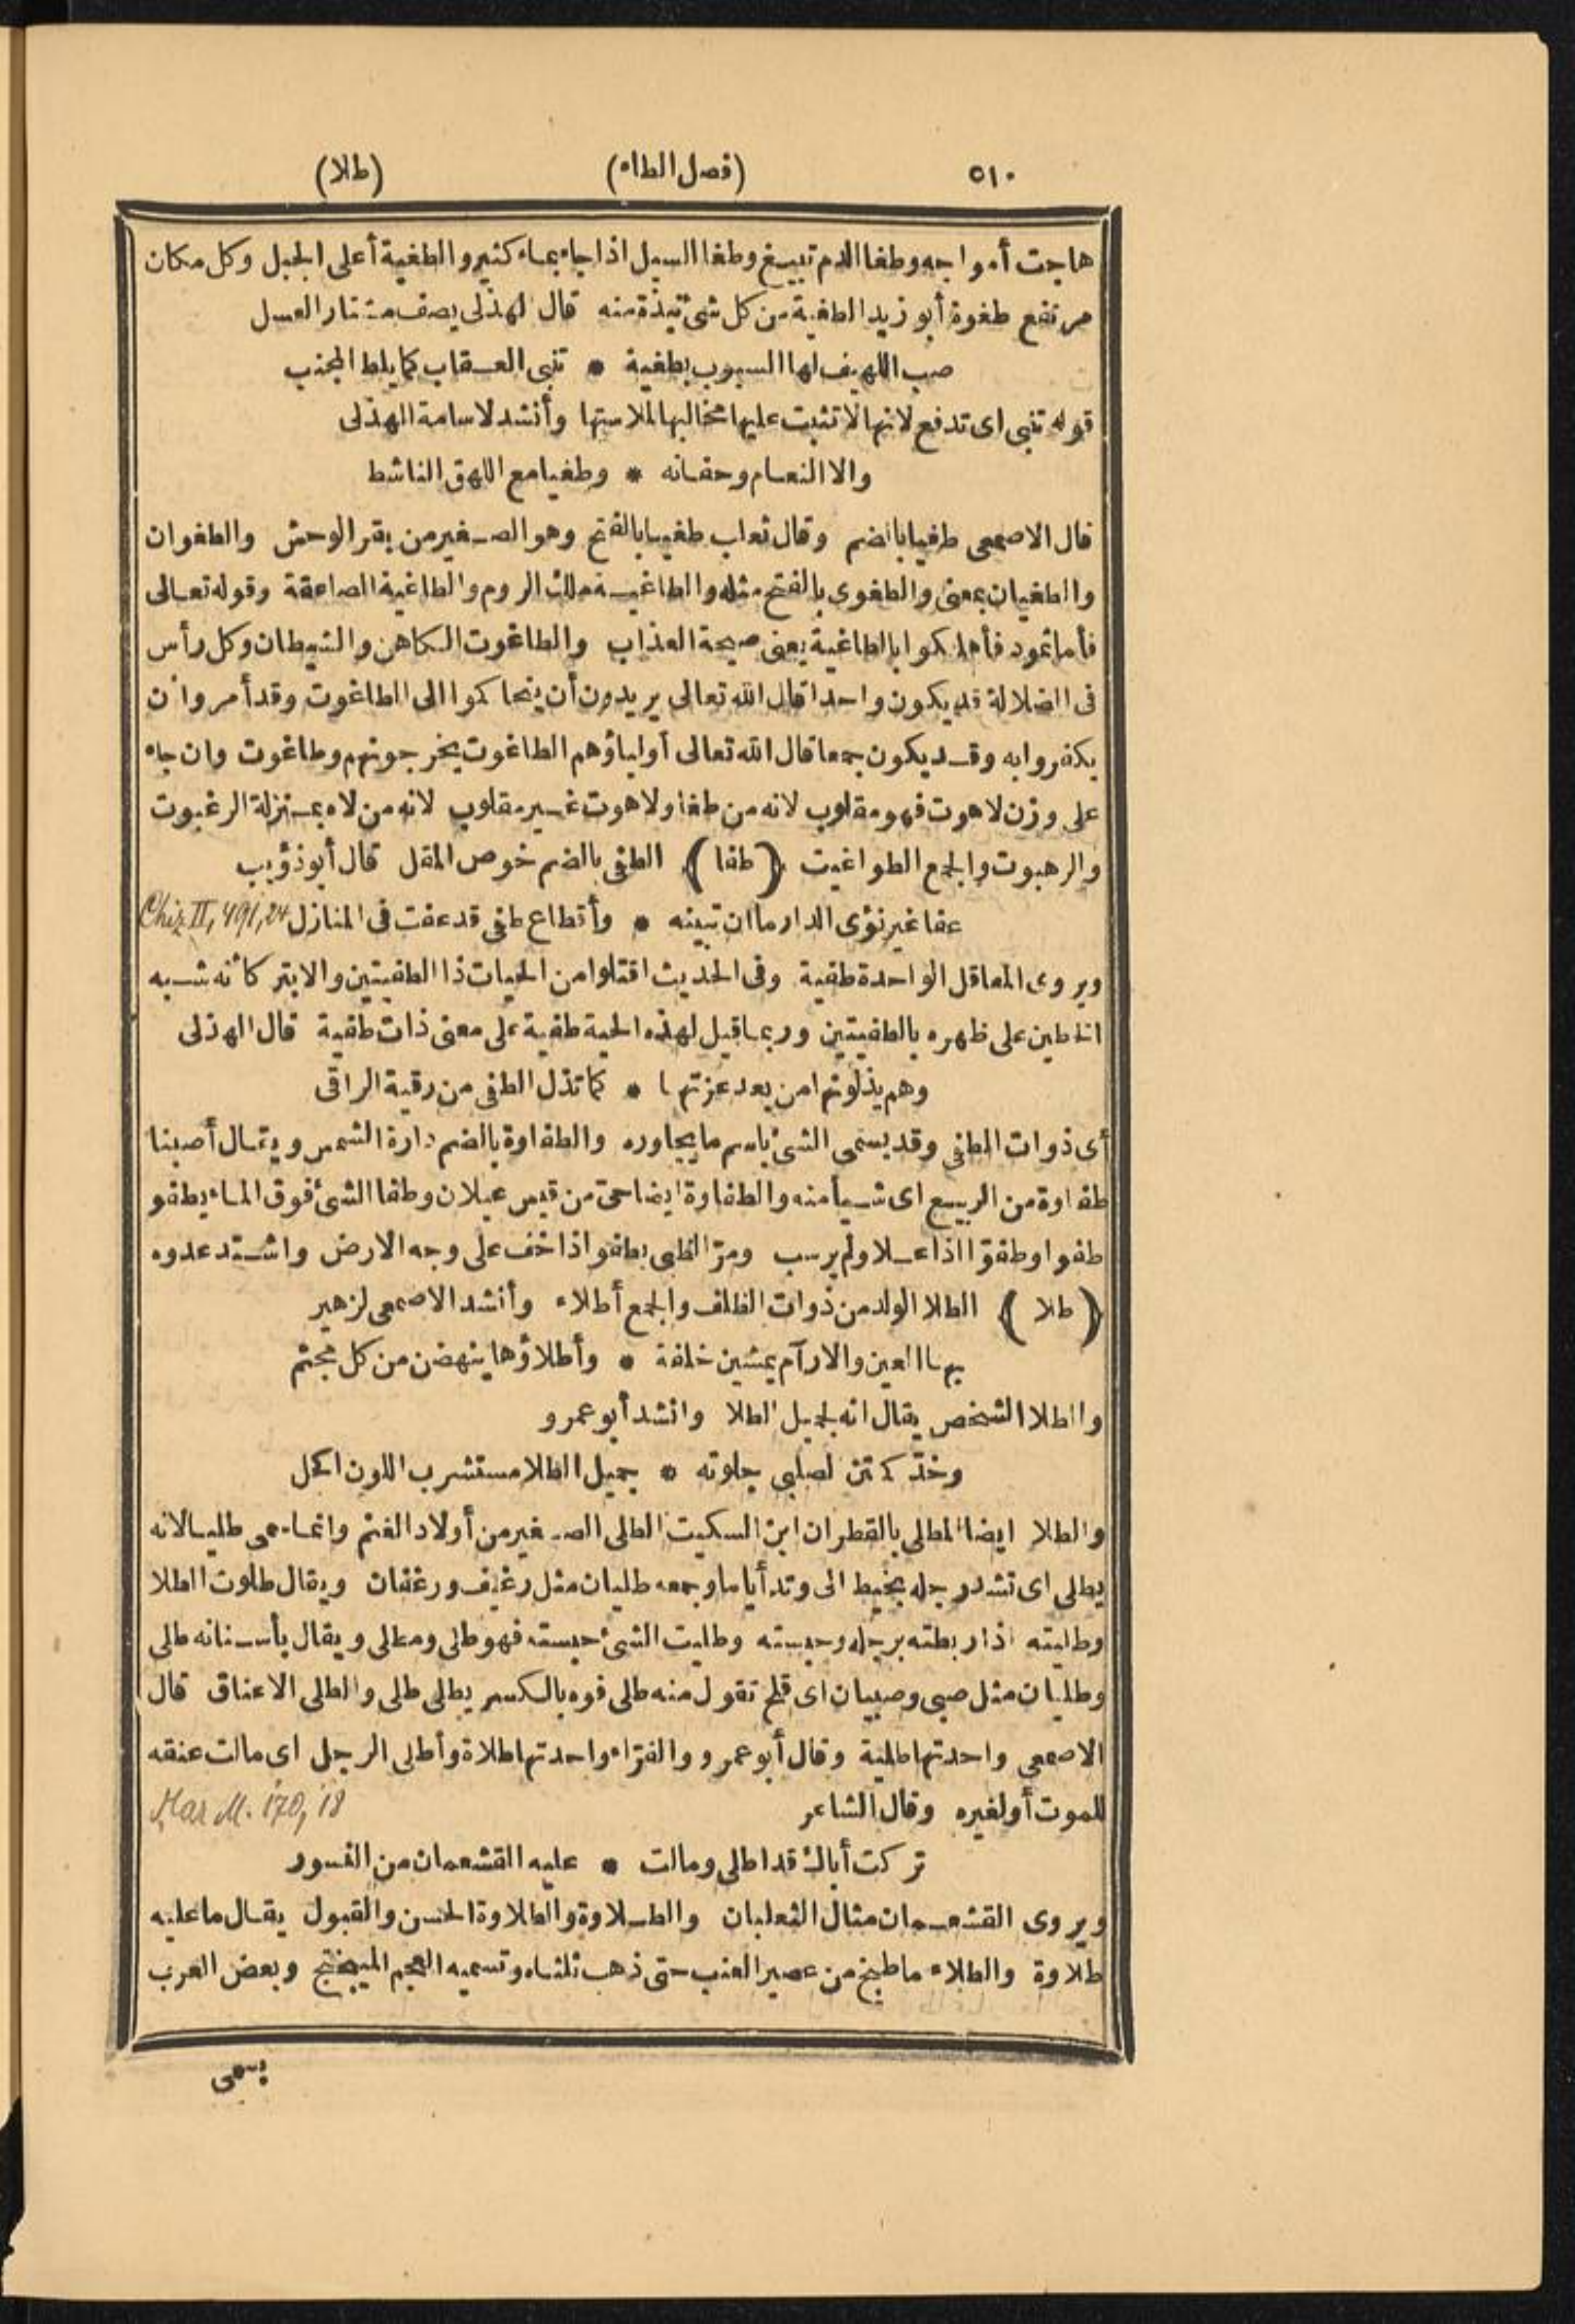 ٥١٠ (فصل الطاء) (طلا)
هاجت أمواجه وطغا الدم تبيغ وطغا السيل اذا جاء بماء كثير والطغية أعلى الجبل وكل مكان
مرتفع طغوة أبو زيد الطغية من كل شئ نبذة منه قال الهذلى يصف مشتار العسل
صب اللهيف لها السبوب بطغية * تنبى العقاب كما يلط المجنب
قوله تنبى اى تدفع لانها لا تثبت عليها مخالبها لملاستها وأنشد لاسامة الهذلى
والا النعام وحفانه * وطغيا مع اللهق الناشط
قال الاصمعى طغيا بالضم وقال ثعلب طغيا بالفتح وهو الصغير من بقر الوحش والطغوان
والطغيان بمعنى والطغوى بالفتح مثله والطاغية ملك الروم والطاغية الصاعقة وقوله تعالى
فأما ثمود فأهلكوا بالطاغية يعنى صيحة العذاب والطاغوت الكاهن والشيطان وكل رأس
فى الضلالة قد يكون واحدا قال الله تعالى يريدون أن يتحاكموا الى الطاغوت وقد أمروا أن
يكفروا به وقد يكون جمعا قال الله تعالى أولياؤهم الطاغوت يخرجونهم وطاغوت وان جاء
على وزن لاهوت فهو مقلوب لانه من طغا ولاهوت غير مقلوب لانه من لاه بمنزلة الرغبوت
والرهبوت والجمع الطواغيت (طفا) الطفى بالضم خوص المقل قال أبو ذؤيب
عفا غير نؤى الدار ما ان تبينه * وأقطاع طفى قد عفت فى المنازل Chiz II, 491, 24
ويروى المعاقل الواحدة طفية وفى الحديث اقتلوا من الحيات ذا الطفيتين والابتر كأنه شبه
الخطين على ظهره بالطفيتين وربما قيل لهذه الحية طفية على معنى ذات طفية قال الهذلى
وهم يذلونها من بعد عزتها * كما تذل الطفى من رقية الراقى
أى ذوات الطفى وقد يسمى الشئ باسم ما يجاوره والطفاوة بالضم دارة الشمس ويقال أصبنا
طفاوة من الربيع اى شيأ منه والطفاوة ايضا حى من قيس عيلان وطفا الشئ فوق الماء يطفو
طفوا وطفوّا اذا علا ولم يرسب ومرّ الظبى يطفو اذا خف على وجه الارض واشتد عدوه
(طلا) الطلا الولد من ذوات الظلف والجمع أطلاء وأنشد الاصمعى لزهير
بها العين والارآم يمشين خلفة * وأطلاؤها ينهضن من كل مجثم
والطلا الشخص يقال انه لجميل الطلا وانشد أبو عمرو
وخدّ كمتن الصلبى جلوته * جميل الطلا مستشرب اللون اكحل
والطلا ايضا المطلى بالقطران ابن السكيت الطلى الصغير من أولاد الغنم وانما سمى طليا لانه
يطلى اى تشد رجله بخيط الى وتد أياما وجمعه طليان مثل رغيف ورغفان ويقال طلوت الطلا
وطليته اذا ربطته برجله وحبسته وطليت الشئ حبسته فهو طلى ومطلى ويقال بأسنانه طلى
وطليان مثل صبى وصبيان اى قلح تقول منه طلى فوه بالكسر يطلى طلى والطلى الاعناق قال
الاصمعى واحدتها طلية وقال أبو عمرو والفرّاء واحدتها طلاة وأطلى الرجل اى مالت عنقه
للموت أو لغيره وقال الشاعر Har M. 170, 18
تركت أباك قد اطلى ومالت * عليه القشعمان من النسور
ويروى القشعمان مثال الثعلبان والطلاوة والطلاوة الحسن والقبول يقال ما عليه
طلاوة والطلاء ما طبخ من عصير العنب حتى ذهب ثلثاه وتسميه العجم الميبختج وبعض العرب
يسمى